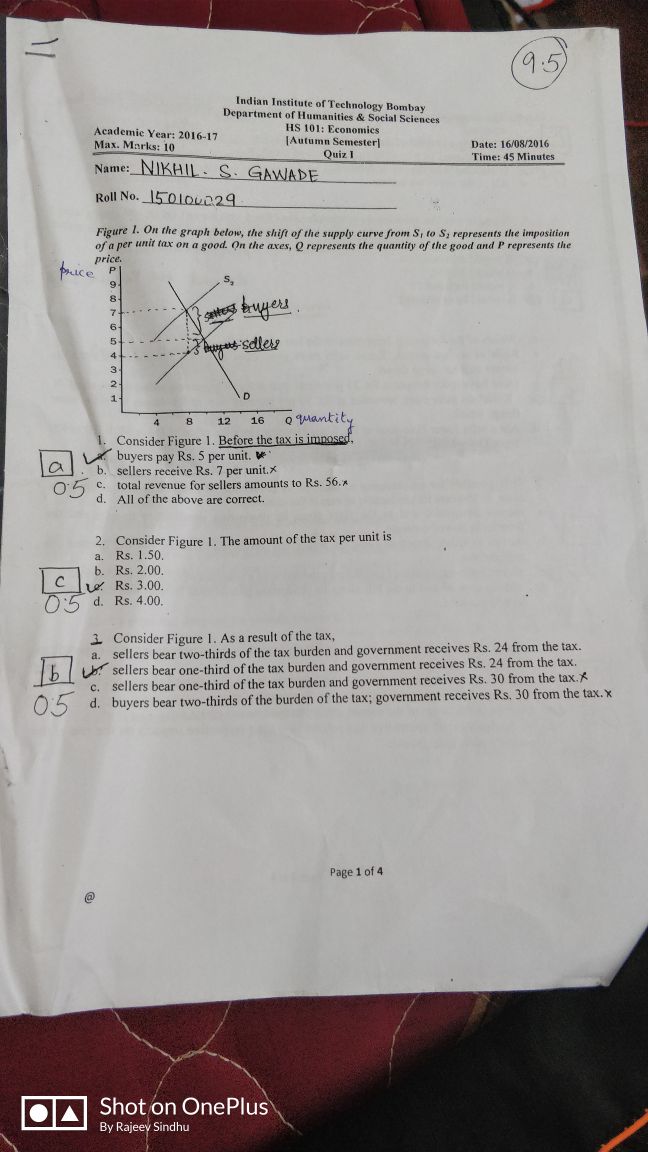 9.5
Indian Institute of Technology Bombay
Department of Humanities & Social Sciences
HS 101: Economics
Academic Year: 2016-17 [Autumn Semester] Date: 16/08/2016
Max. Marks: 10 Quiz 1 Time: 45 Minutes
Name: NIKHIL. S. GAWADE
Roll No.
Figure 1. On the graph below, the shift of the supply curve from S₁ to S₂ represents the imposition
of a per unit tax on a good. On the axes, Q represents the quantity of the good and P represents the
price.
price P
9
8
7
6
5
4
3
2
1
S₂
buyers
sellers
D
4 8 12 16 Q quantity
1. Consider Figure 1. Before the tax is imposed,
a a. buyers pay Rs. 5 per unit.
b. sellers receive Rs. 7 per unit.x
0.5 c. total revenue for sellers amounts to Rs. 56.x
d. All of the above are correct.
2. Consider Figure 1. The amount of the tax per unit is
a. Rs. 1.50.
b. Rs. 2.00.
c c. Rs. 3.00.
0.5 d. Rs. 4.00.
3. Consider Figure 1. As a result of the tax,
a. sellers bear two-thirds of the tax burden and government receives Rs. 24 from the tax.
b b. sellers bear one-third of the tax burden and government receives Rs. 24 from the tax.
c. sellers bear one-third of the tax burden and government receives Rs. 30 from the tax.x
0.5 d. buyers bear two-thirds of the burden of the tax; government receives Rs. 30 from the tax.x
Page 1 of 4
@
Shot on OnePlus
By Rajeev Sindhu